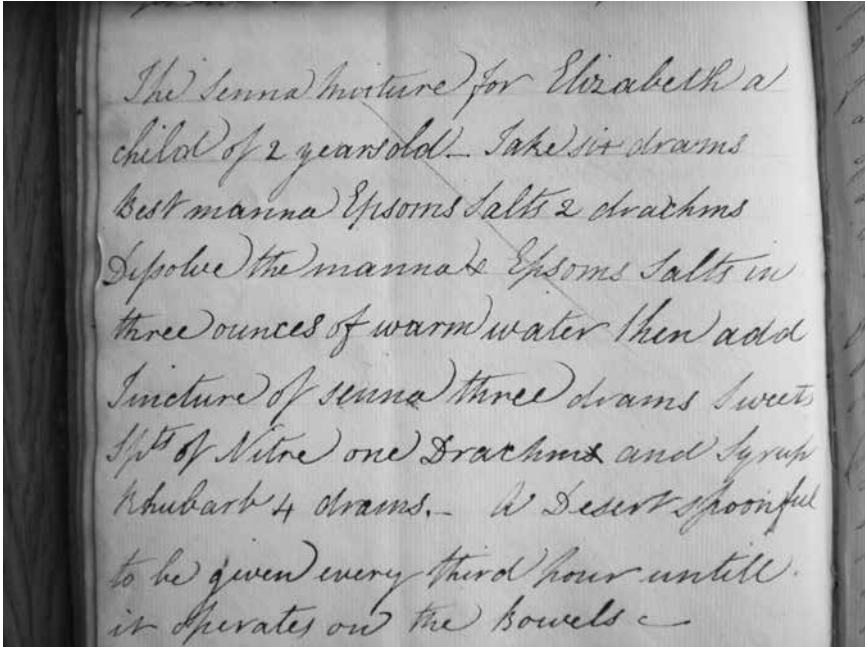 The Senna Mixture for Elizabeth a
child of 2 years old_ Take six drams
Best manna Epsoms Salts 2 drachms
Dissolve the manna & Epsoms Salts in
three ounces of warm water then add
Tincture of senna three drams Sweet
Spts of Nitre one Drachm and Syrup
Rhubarb 4 drams._ A Desert spoonful
to be given every third hour untill
it operates on the Bowels